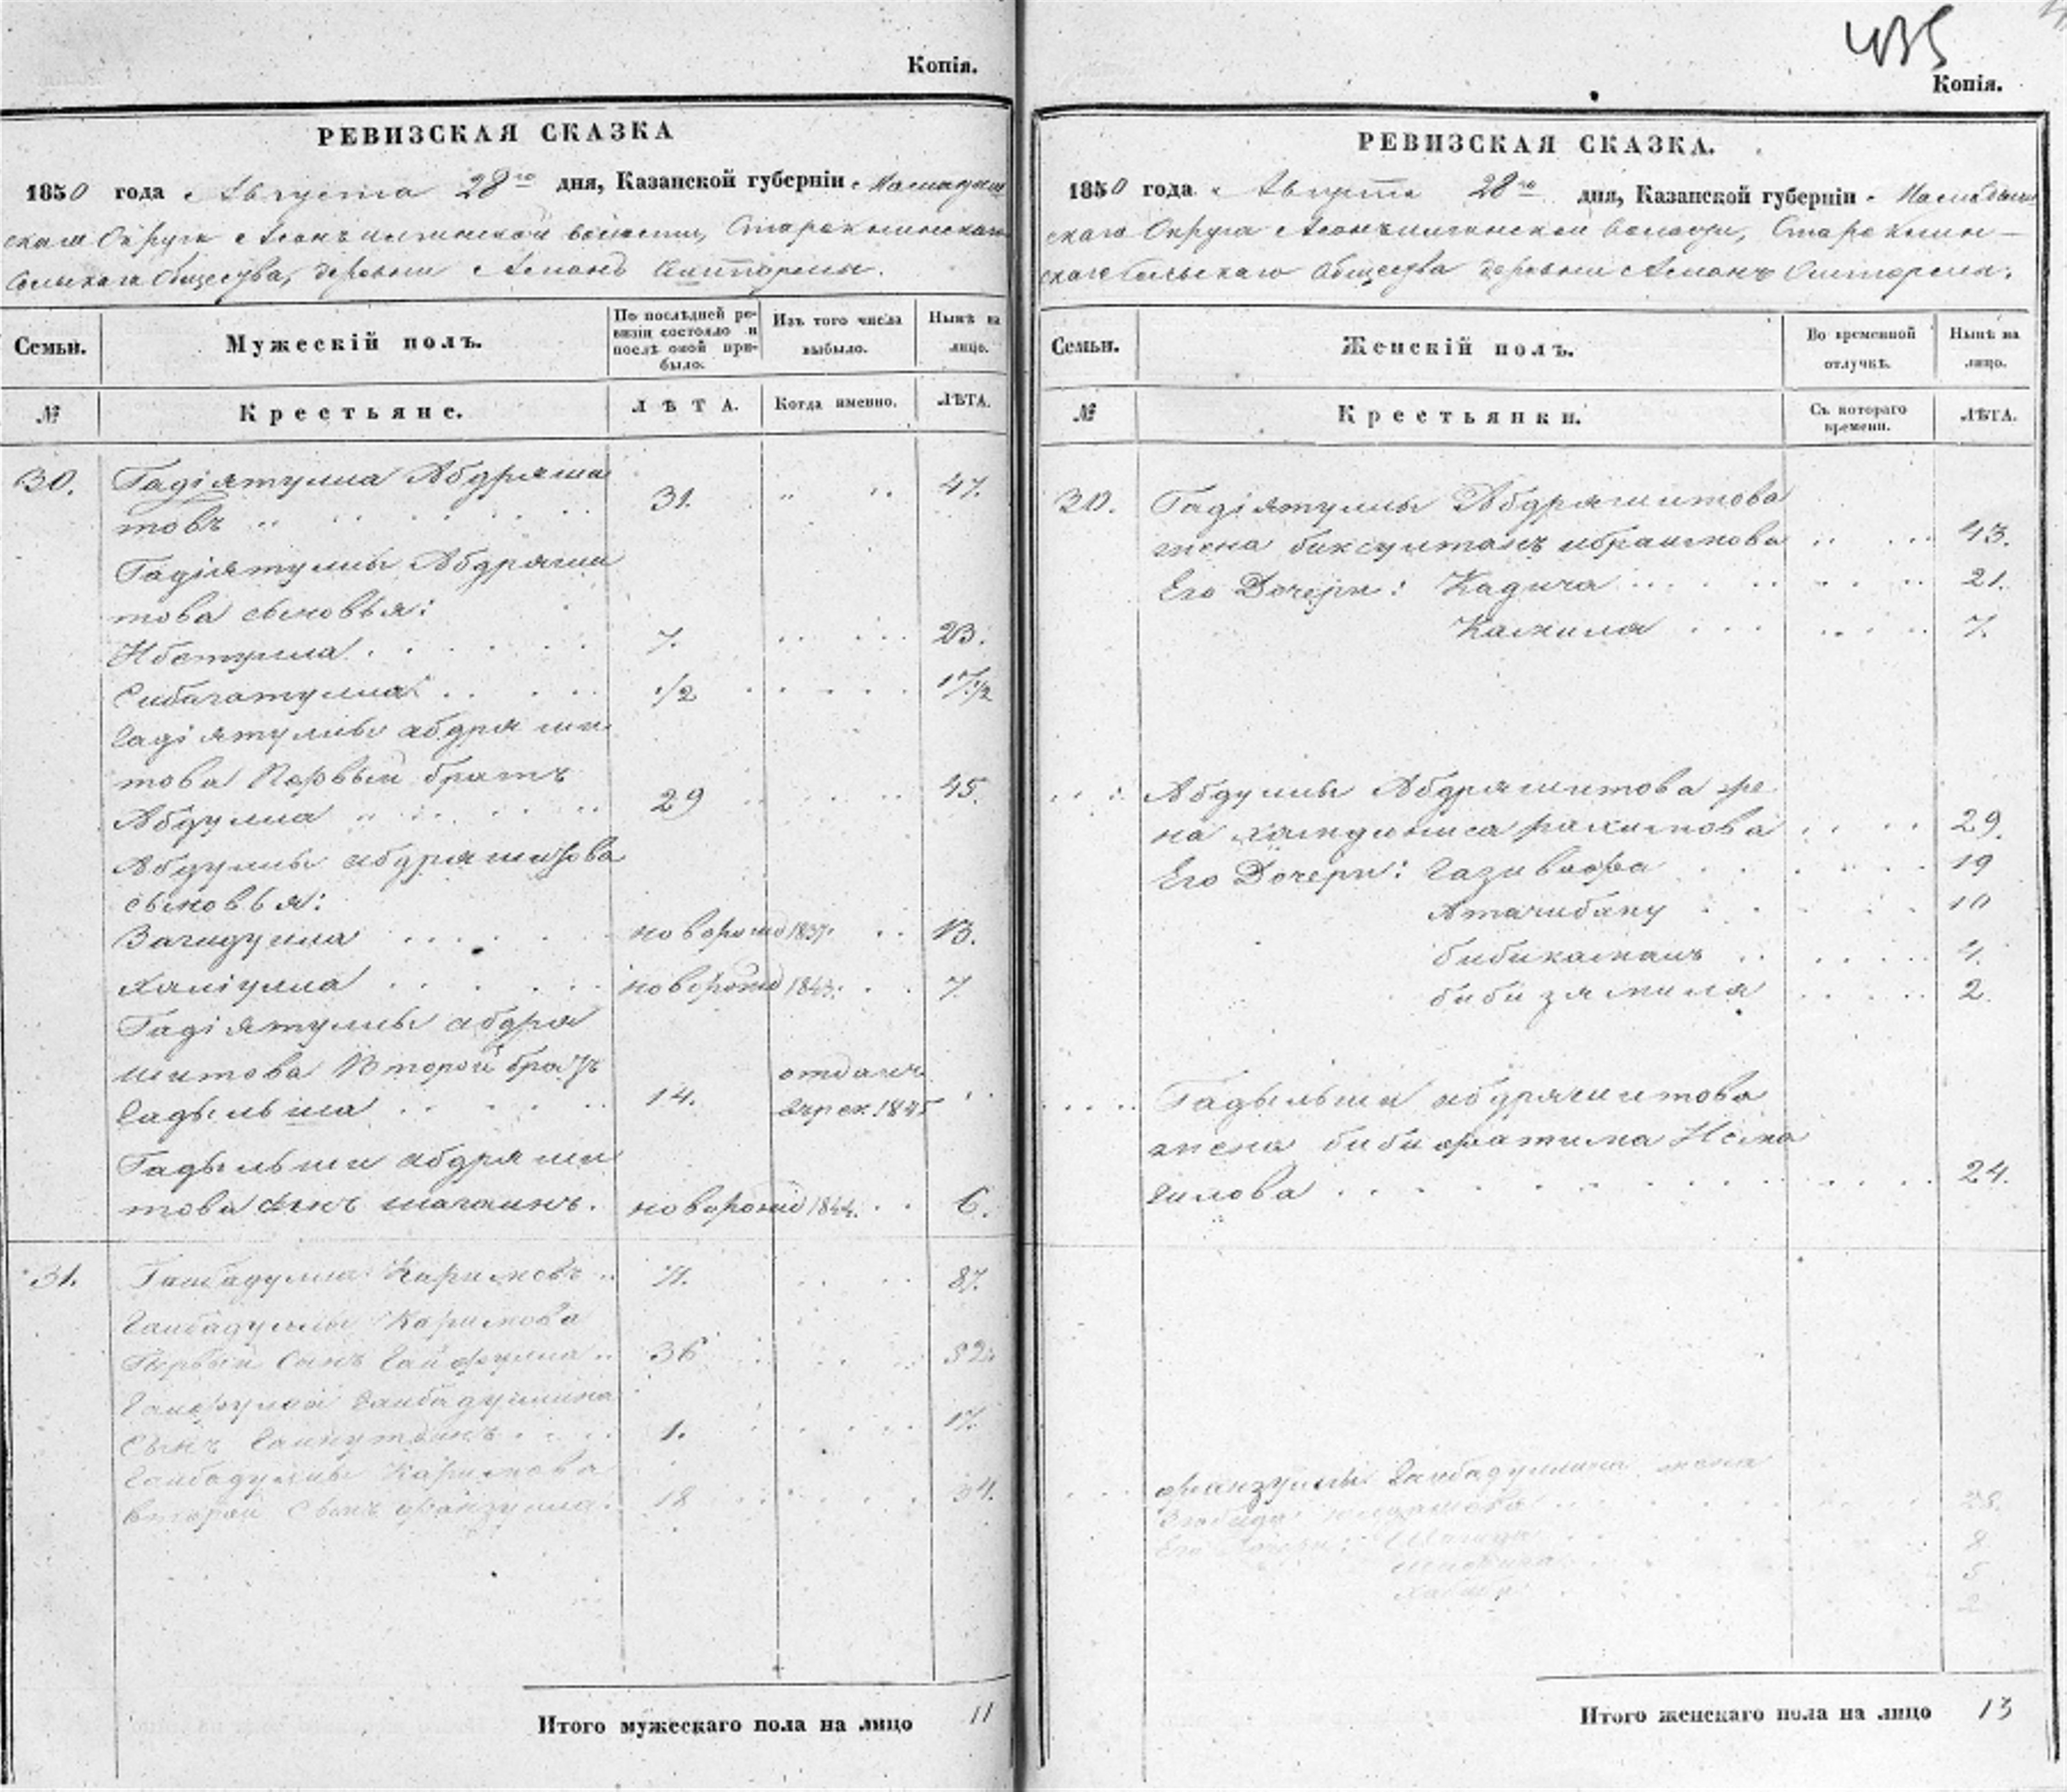 Копія.
РЕВИЗСКАЯ СКАЗКА
1850 года Августа 28го дня, Казанской губерніи Мамадыш
скаго Округа волости, Староклинскаго
Сельскаго Общества, деревни
Семьи.
Мужескій полъ.
По послѣдней ре-
визіи состояло и
послѣ оной при-
было.
Изъ того числа
выбыло.
Нынѣ на
лицо.
№
Крестьяне.
ЛѢТА.
Когда именно.
ЛѢТА.
30. Гадіятулла Абдряши
товъ 31. 47.
Гадіятуллы Абдряши
това сыновья:
7. 23.
Сибагатулла 1/2 17 1/2
Гадіятуллы абдряши
това Первый братъ
Абдулла 29 45.
Абдуллы абдряшитова
сыновья:
Загидулла новорожд 1837. 13.
Халіулла новорожд 1843. 7.
Гадіятуллы абдря
шитова Второй братъ отданъ
Гадыльша 14. въ рек. 1845
Гадыльши абдряши
това сынъ шагаинъ. новорожд 1844. 6.
31. Гаибадулла Каримовъ 71. 87.
Гаибадуллы Каримова
Первый сынъ Гайфулла 36 52.
Гайфуллы Гаибадуллина
сынъ 1. 17.
Гаибадуллы Каримова
второй сынъ файзулла 18 34.
Итого мужескаго пола на лицо 11
435
Копія.
РЕВИЗСКАЯ СКАЗКА.
1850 года Августа 28го дня, Казанской губерніи Мамадыш
скаго Округа волости, Староклин-
скаго Сельскаго Общества деревни
Семьи.
Женскій полъ.
Во временной
отлучкѣ.
Нынѣ на
лицо.
№
Крестьянки.
Съ котораго
времени.
ЛѢТА.
30. Гадіятуллы Абдряшитова
жена биксултанъ ибраимова 43.
Его Дочери: Кадича 21.
Камиля 7.
Абдуллы Абдряшитова же
на рахимова 29.
Его Дочери: 19
10
бибикамалъ 4.
биби зямиля 2.
Гадыльши абдряшитова
жена биби фатима Исма
гилова 24.
файзуллы Гаибадуллина жена
28.
Его Дочери: 8
5
2
Итого женскаго пола на лицо 13